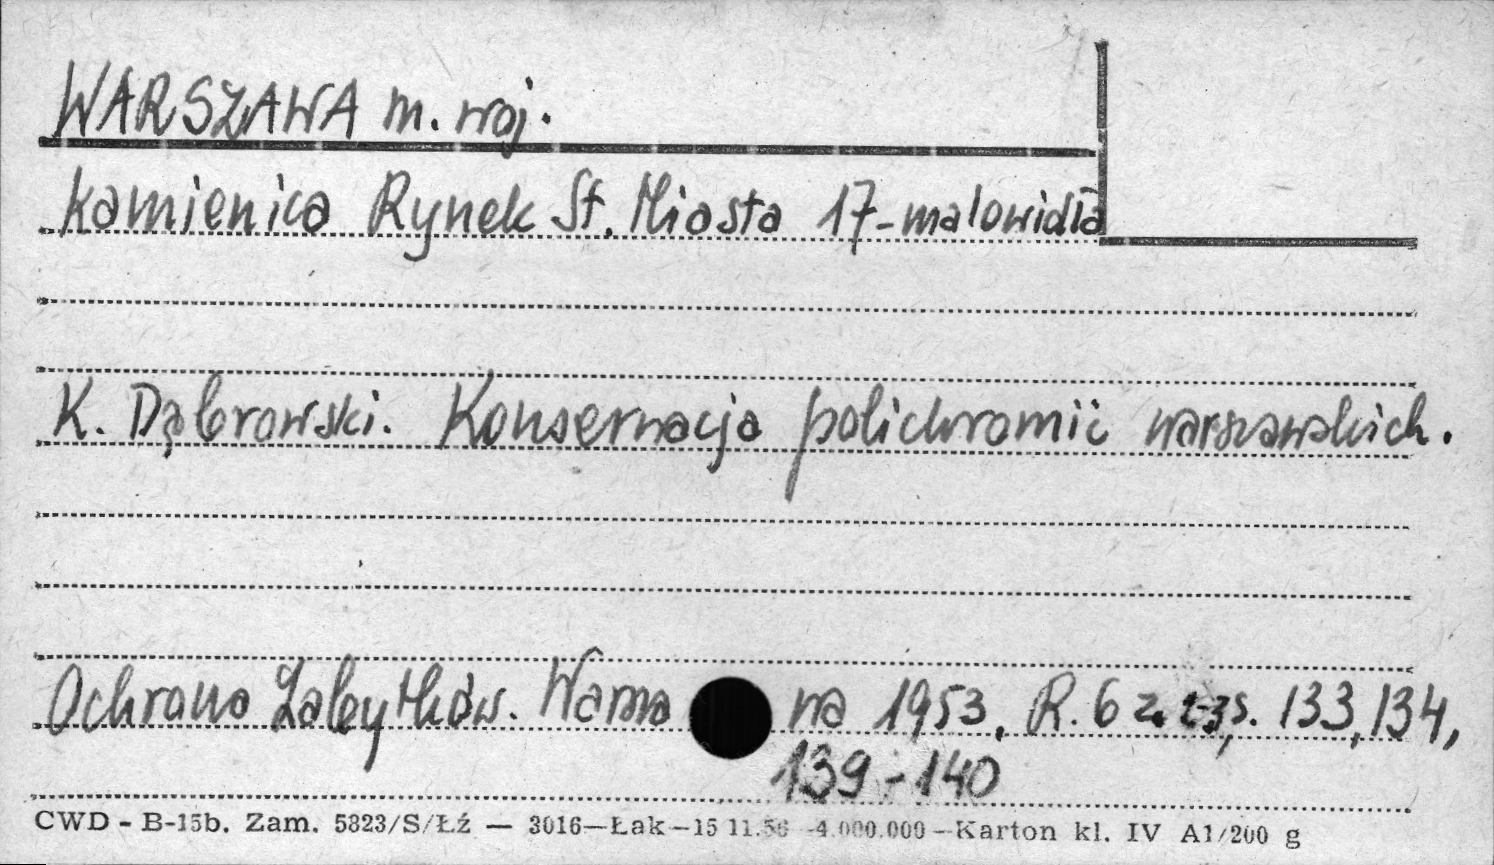 WARSZAWA m. woj.
Kamienica Rynek St. Miasta 17-malowidła
K. Dąbrowski. Konserwacja polichromii warszawskich.
Ochrona Zabytków. Warsza wa 1953, R. 6 z. 2-3, s. 133, 134,
139-140
CWD - B-15b. Zam. 5823/S/Łź — 3016—Łak—15 11.56 -4.000.000—Karton kl. IV A1/200 g